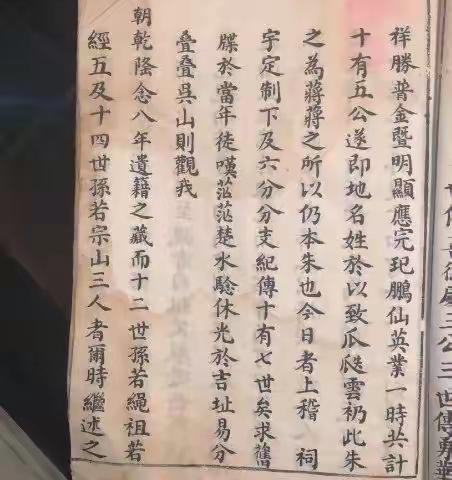 祥勝普金暨明顯應完玘鵬仙英業一時共計
十有五公遂即地名姓於以致瓜瓞雲礽此朱
之為蔣蔣之所以仍本朱也今日者上稽 祠
宇定制下及六分分支紀傳十有七世矣求舊
牒於當年徒嘆茫茫楚水驗休光於吉址易分
疊疊吳山則觀我
朝乾隆念八年遺籍之藏而十二世孫若繩祖若
經五及十四世孫若宗山三人者爾時繼述之